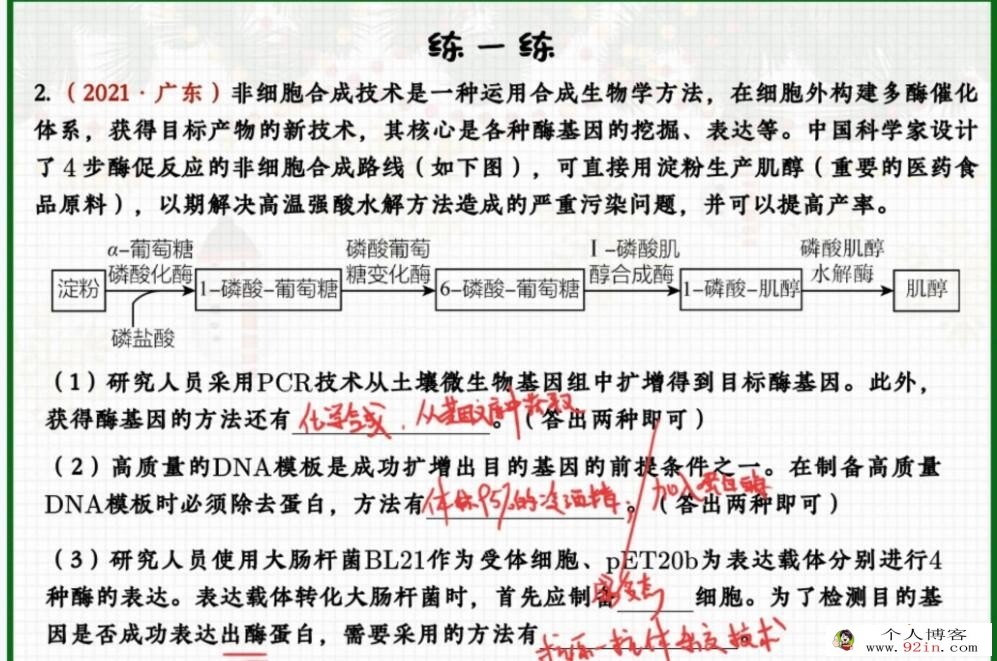 练一练
2.（2021·广东）非细胞合成技术是一种运用合成生物学方法，在细胞外构建多酶催化
体系，获得目标产物的新技术，其核心是各种酶基因的挖掘、表达等。中国科学家设计
了4步酶促反应的非细胞合成路线（如下图），可直接用淀粉生产肌醇（重要的医药食
品原料），以期解决高温强酸水解方法造成的严重污染问题，并可以提高产率。
α-葡萄糖 磷酸葡萄 1-磷酸肌 磷酸肌醇
磷酸化酶 糖变化酶 醇合成酶 水解酶
淀粉 1-磷酸-葡萄糖 6-磷酸-葡萄糖 1-磷酸-肌醇 肌醇
磷盐酸
（1）研究人员采用PCR技术从土壤微生物基因组中扩增得到目标酶基因。此外，
获得酶基因的方法还有 化学合成，从基因文库中获取 。（答出两种即可）
（2）高质量的DNA模板是成功扩增出目的基因的前提条件之一。在制备高质量
DNA模板时必须除去蛋白，方法有 体积95%的冷酒精；加入蛋白酶 。（答出两种即可）
（3）研究人员使用大肠杆菌BL21作为受体细胞、pET20b为表达载体分别进行4
种酶的表达。表达载体转化大肠杆菌时，首先应制备 感受态 细胞。为了检测目的基
因是否成功表达出酶蛋白，需要采用的方法有 抗原-抗体杂交技术 。
个人博客
www.92in.com